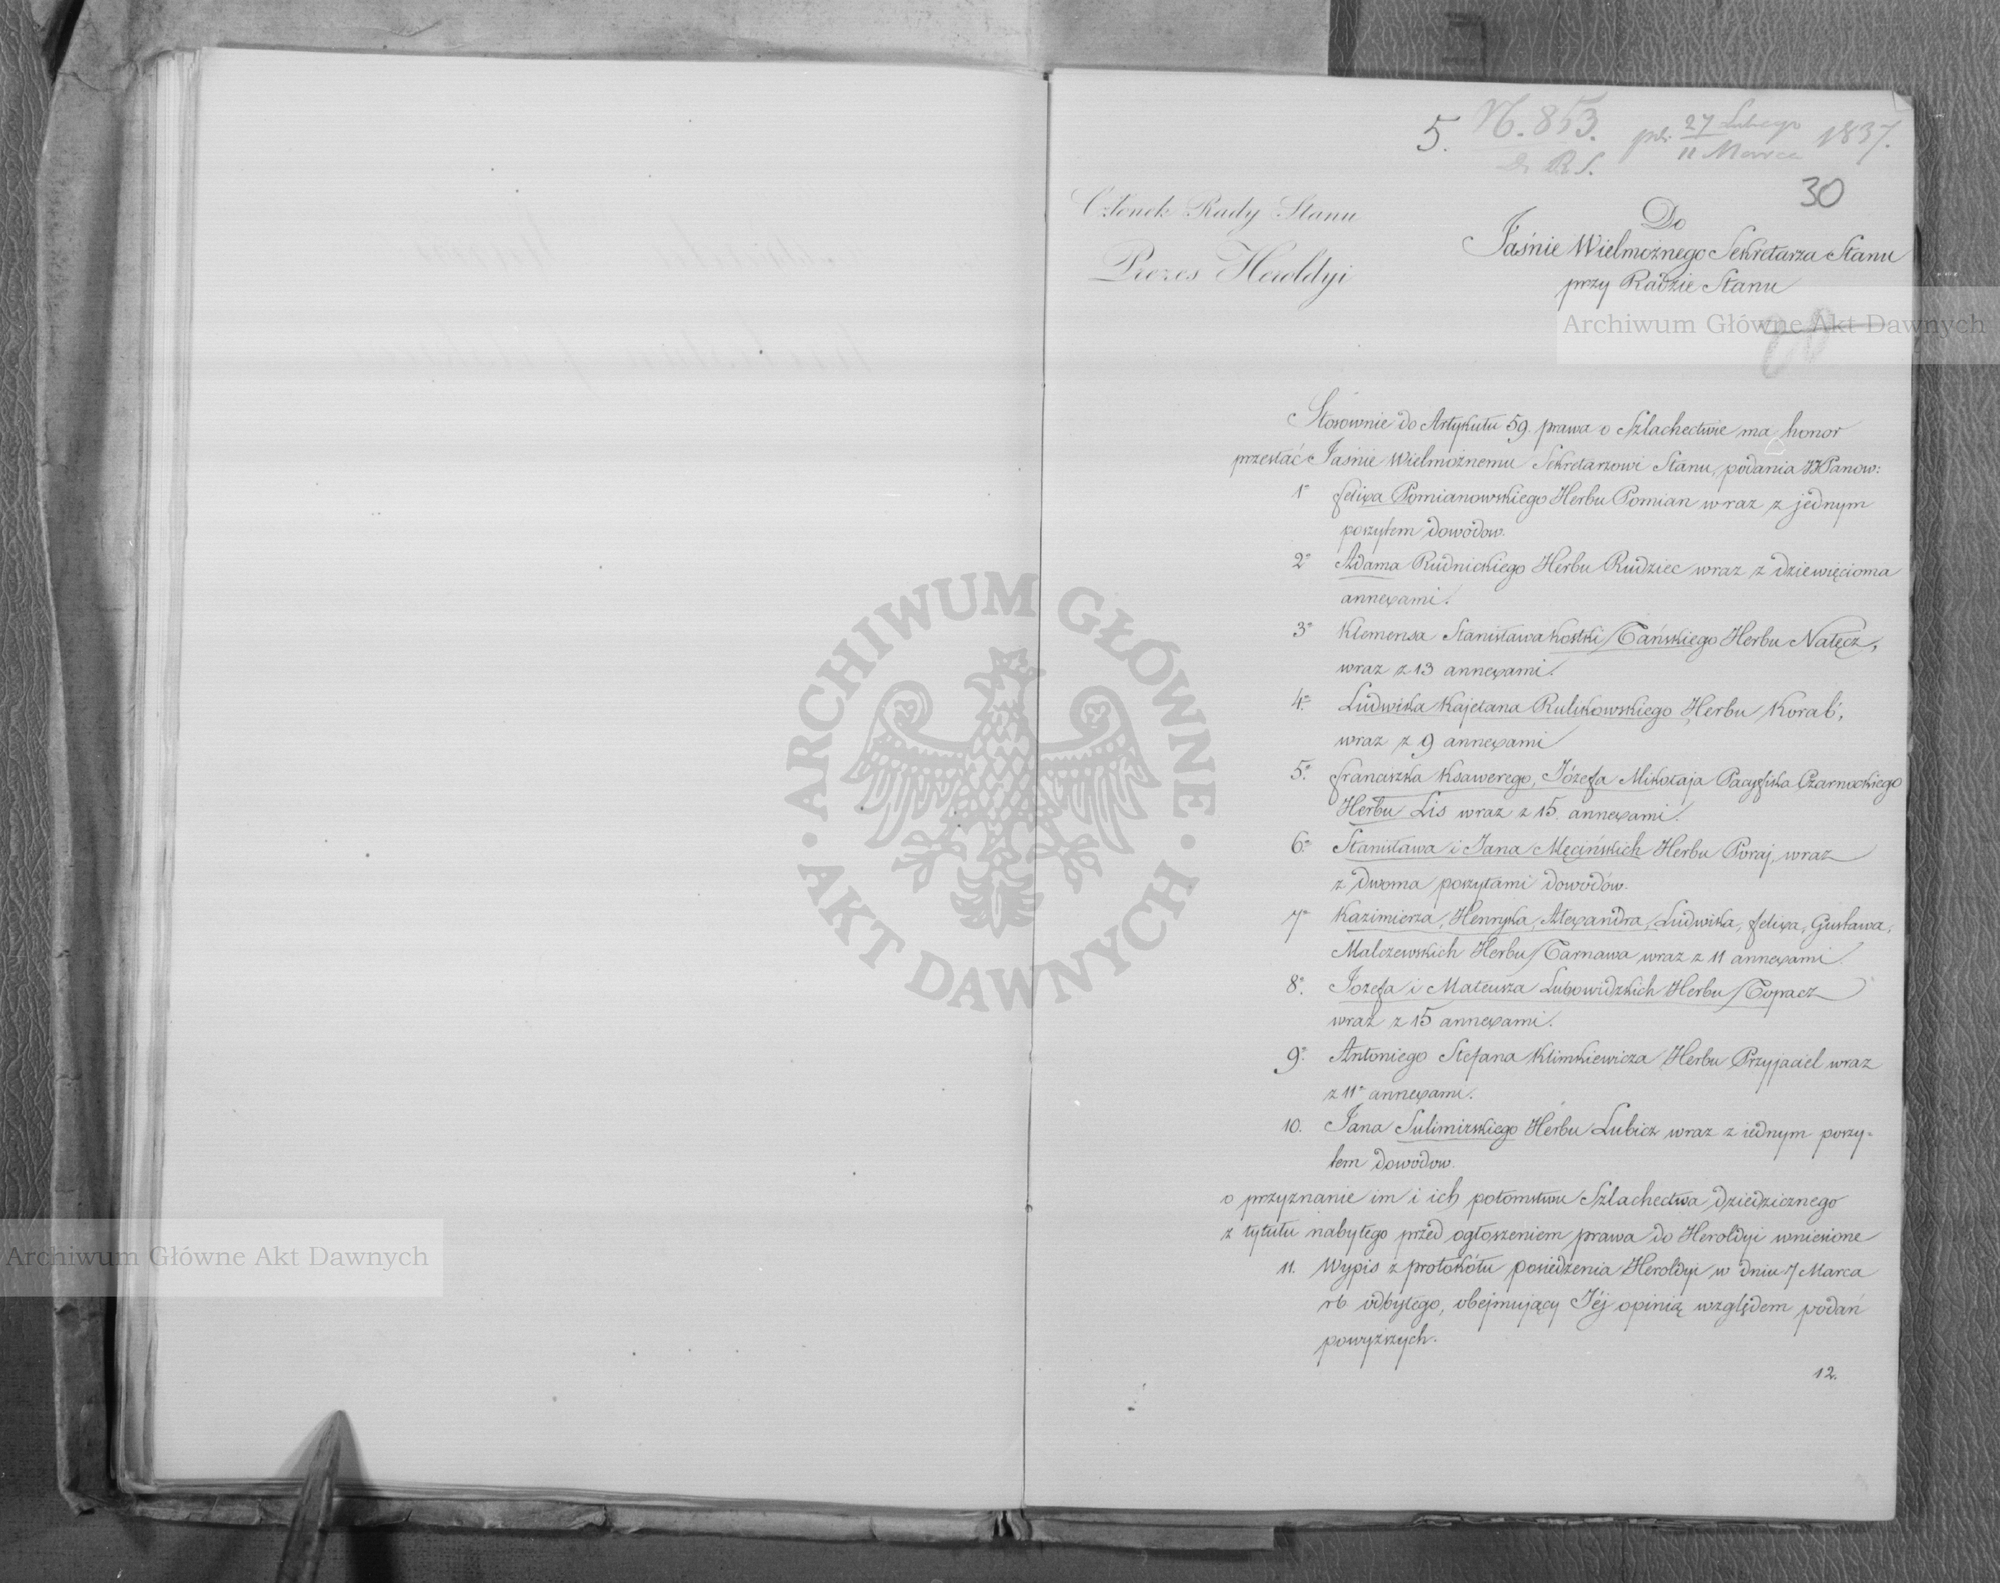 5. N. 853. 27 Lutego 1837.
R. S. 11 Marca
30
Członek Rady Stanu
Prezes Heroldyi
Do
Jaśnie Wielmożnego Sekretarza Stanu
przy Radzie Stanu
Stosownie do Artykułu 59. prawa o Szlachectwie ma honor
przesłać Jaśnie Wielmożnemu Sekretarzowi Stanu, podania JJPanow:
1° Felixa Pomianowskiego Herbu Pomian wraz z jednym
poszytem dowodow.
2° Adama Rudnickiego Herbu Rudziec wraz z dziewięcioma
annexami.
3° Klemensa Stanisława Kostki Tańskiego Herbu Nałęcz,
wraz z 13 annexami.
4° Ludwika Kajetana Rulikowskiego Herbu Korab',
wraz z 9 annexami
5° Franciszka Ksawerego, Józefa Mikołaja Pacyfika Czarnockiego
Herbu Lis wraz z 15. annexami.
6° Stanisława i Jana Męcińskich Herbu Poraj, wraz
z dwoma poszytami dowodów.
7° Kazimierza, Henryka, Alexandra, Ludwika, Felixa, Gustawa,
Malczewskich Herbu Tarnawa wraz z 11 annexami
8° Jozefa i Mateusza Lubowidzkich Herbu Topacz
wraz z 15 annexami.
9° Antoniego Stefana Klimkiewicza Herbu Przyjaciel wraz
z 11° annexami.
10. Jana Sulimirskiego Herbu Lubicz wraz z iednym poszy-
tem dowodow.
o przyznanie im i ich potomstwu Szlachectwa dziedzicznego
z tytułu nabytego przed ogłoszeniem prawa do Heroldyi wniesione
11. Wypis z protokółu posiedzenia Heroldyi w dniu 7 Marca
rb. odbytego, obejmujący Jéj opinią względem podań
powyższych.
12.
Archiwum Główne Akt Dawnych
Archiwum Główne Akt Dawnych
ARCHIWUM GŁÓWNE
AKT DAWNYCH